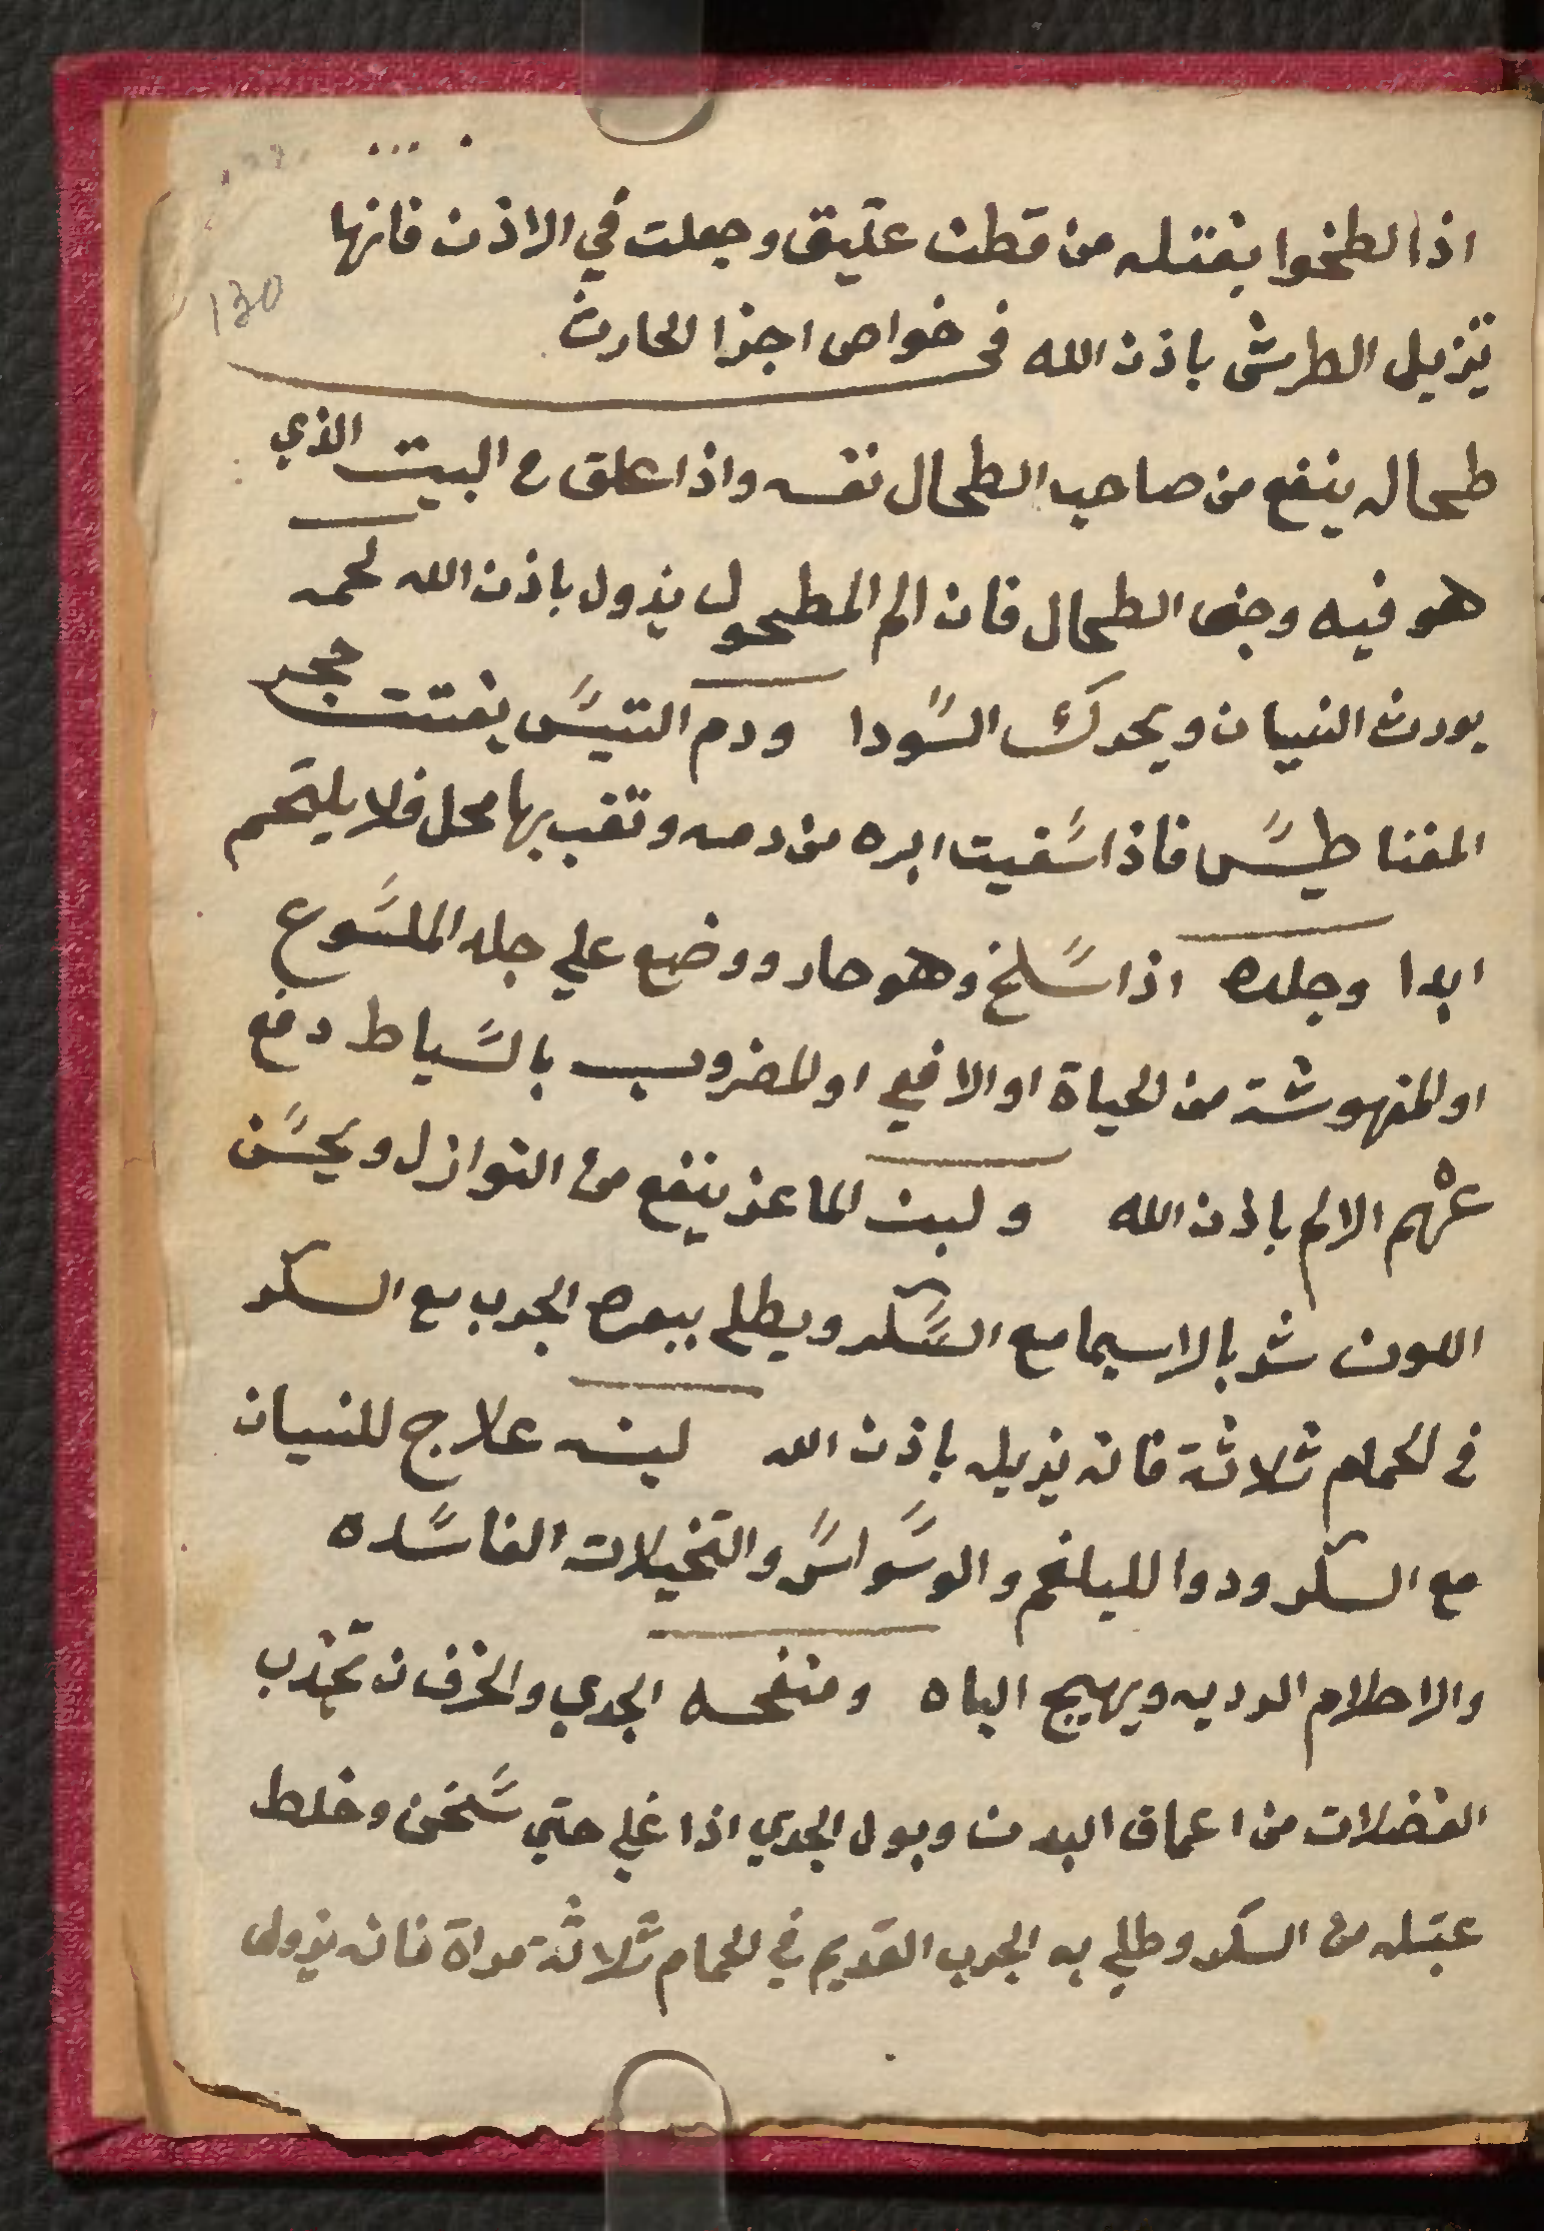 اذا لطخوا بفتله من قطن عتيق وجعلت في الاذن فانها
130
تزيل الطرش باذن الله في خواص اجزا الحارث
طحاله ينفع من صاحب الطحال نفسه واذا علق في البيت الذي
هو فيه وجف الطحال فان الم المطحول يزول باذن الله لحمه
يورث النسيان ويحرك السودا ودم التيس يفتت حجر
المغناطيس فاذا سقيت ابره من دمه وثقب بها محل فلا يلتحم
ابدا وجلده اذا سلخ وهو حار ووضع علي جلد الملسوع
او المنهوشة من الحياة او الافعي او المضروب بالسياط دفع
عنهم الالم باذن الله ولبن الماعز ينفع من النوازل ويحسن
اللون شربا لاسيما مع السكر ويطلي ببعره الجرب مع السكر
في الحمام ثلاثة فانه يزيله باذن الله لبنه علاج للنسيان
مع السكر ودوا للبلغم والوسواس والتخيلات الفاسده
والاحلام الرديه ويهيج الباه ومنفحه الجدي والخرفان تجذب
الفضلات من اعماق البدن وبول الجدي اذا غلي حتي سخن وخلط
بمثله من السكر وطلي به الجرب القديم في الحمام ثلاثة مراة فانه يزول